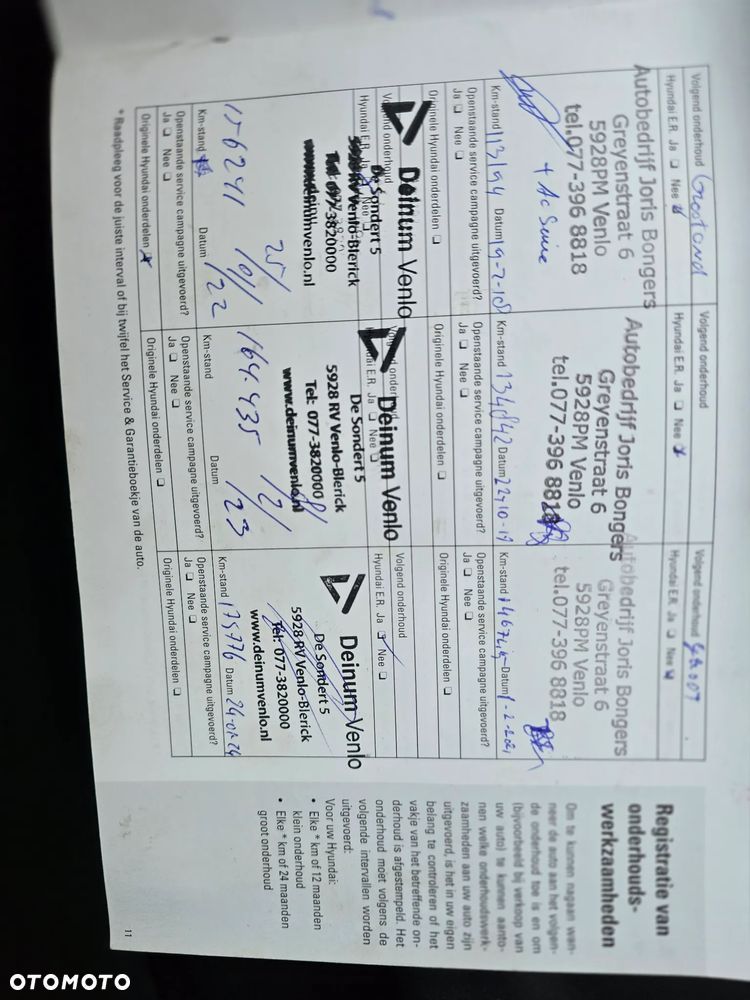 Registratie van
onderhouds-
werkzaamheden
Om te kunnen nagaan wan-
neer de auto aan het volgen-
de onderhoud toe is en om
(bijvoorbeeld bij verkoop van
uw auto) te kunnen aanto-
nen welke onderhoudswerk-
zaamheden aan uw auto zijn
uitgevoerd, is het in uw eigen
belang te controleren of het
vakje van het betreffende on-
derhoud is afgestempeld. Het
onderhoud moet volgens de
volgende intervallen worden
uitgevoerd:
Voor uw Hyundai:
• Elke * km of 12 maanden
klein onderhoud
• Elke * km of 24 maanden
groot onderhoud
11
Volgend onderhoud
Hyundai E.R. Ja ❏ Nee
Autobedrijf Joris Bongers
Greyenstraat 6
5928PM Venlo
tel.077-396 8818
+ Ac
Km-stand 113194 Datum 19-7-18
Openstaande service campagne uitgevoerd?
Ja ❏ Nee ❏
Originele Hyundai onderdelen ❏
Volgend onderhoud
Hyundai E.R. Ja ❏ Nee
Autobedrijf Joris Bongers
Greyenstraat 6
5928PM Venlo
tel.077-396 8818
Km-stand Datum 22-10-19
Openstaande service campagne uitgevoerd?
Ja ❏ Nee ❏
Originele Hyundai onderdelen ❏
Volgend onderhoud
Hyundai E.R. Ja ❏ Nee
Autobedrijf Joris Bongers
Greyenstraat 6
5928PM Venlo
tel.077-396 8818
Km-stand Datum
Openstaande service campagne uitgevoerd?
Ja ❏ Nee ❏
Originele Hyundai onderdelen ❏
Volgend onderhoud
Hyundai E.R. Ja
Deinum Venlo
De Sondert 5
5928 RV Venlo-Blerick
Tel: 077-3820000
www.deinumvenlo.nl
156241
Km-stand Datum
Openstaande service campagne uitgevoerd?
Ja ❏ Nee ❏
Originele Hyundai onderdelen
Volgend onderhoud
Hyundai E.R. Ja ❏ Nee ❏
Deinum Venlo
De Sondert 5
5928 RV Venlo-Blerick
Tel: 077-3820000
www.deinumvenlo.nl
164.435
Km-stand Datum
Openstaande service campagne uitgevoerd?
Ja ❏ Nee ❏
Originele Hyundai onderdelen ❏
Volgend onderhoud
Hyundai E.R. Ja ❏ Nee ❏
Deinum Venlo
De Sondert 5
5928 RV Venlo-Blerick
Tel: 077-3820000
www.deinumvenlo.nl
Km-stand Datum 24-01-24
Openstaande service campagne uitgevoerd?
Ja ❏ Nee ❏
Originele Hyundai onderdelen ❏
* Raadpleeg voor de juiste interval of bij twijfel het Service & Garantieboekje van de auto.
OTOMOTO